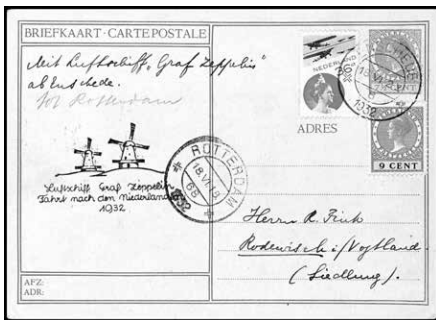 BRIEFKAART · CARTE POSTALE
Mit Luftschiff „Graf Zeppelin"
ab Enschede.
Rotterdam
NEDERLAND
1932
CENT
ADRES
9 CENT
ROTTERDAM
18.VI.18
1932
Luftschiff Graf Zeppelin
Fahrt nach den Niederlanden
1932
Herrn R. Fink
Rodewisch i/Vogtland.
(Siedlung).
AFZ:
ADR: